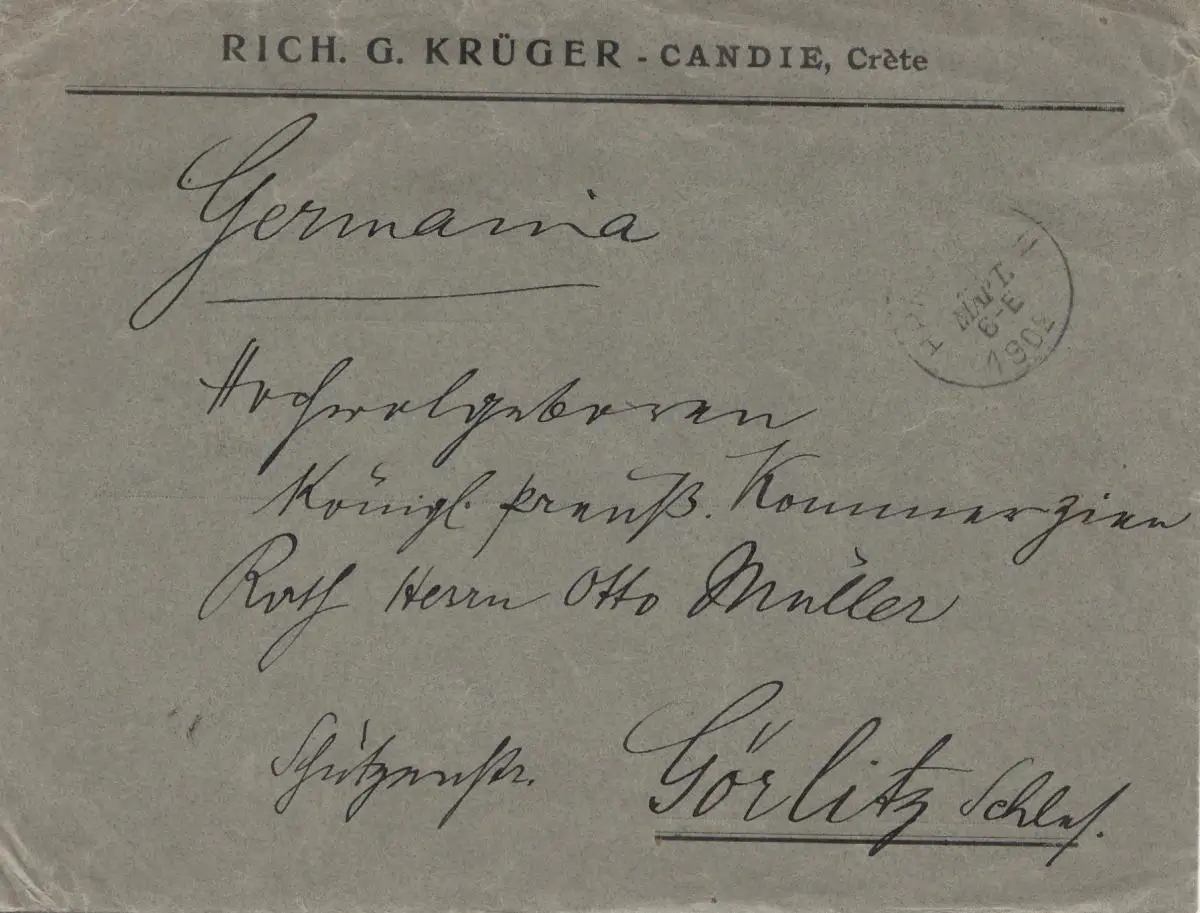 RICH. G. KRÜGER - CANDIE, Crète
Germania
ΜΑΡΤ.
6-Ε
1902
Hochwolgeboren
Königl. Preuß. Kommerzien
Rath Herrn Otto Müller
Schützenstr. Görlitz Schles.